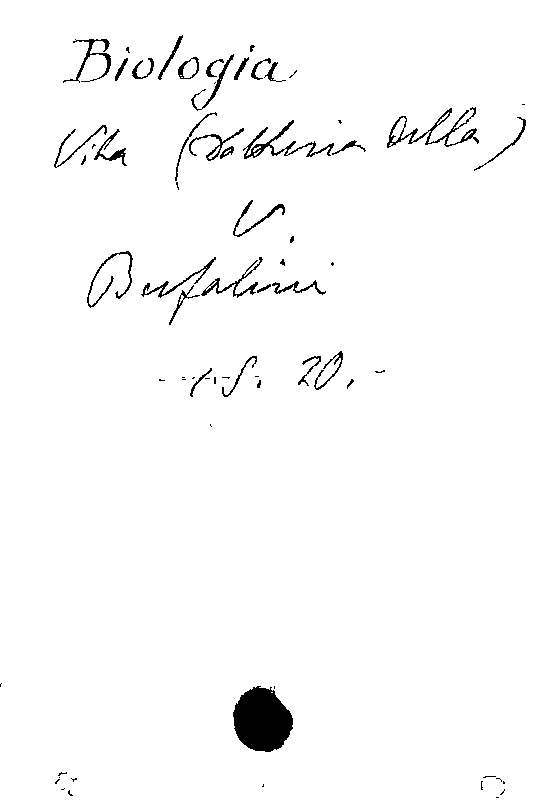 Biologia
Vita (Dottrina della)
V.
Bufalini
S. 20.-